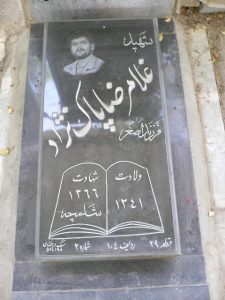 شهید
غلامرضا پاک نژاد
فرزند اصغر
ولادت
۱۳۴۱
شهادت
۱۳۶۶
شلمچه
قطعه ۲۹ ردیف ۱۰۴ شماره ۲